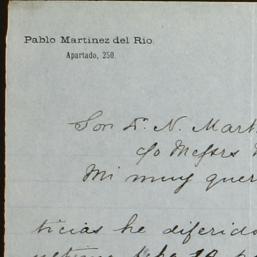 Pablo Martinez del Rio
Apartado, 250.
Sor D. N. Mart
c/o Messrs
Mi muy quer
ticias he diferido